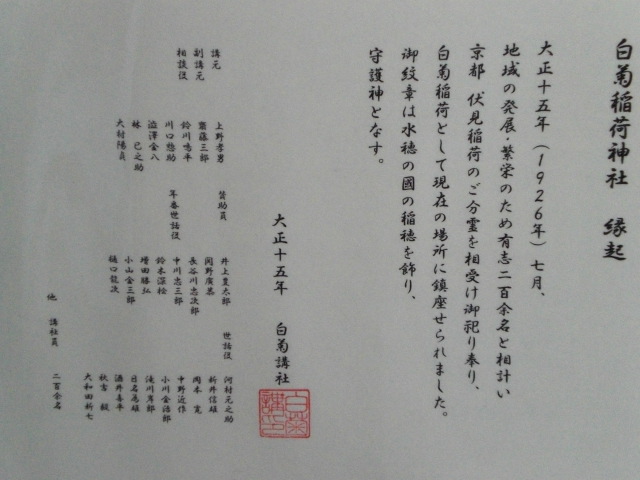 白菊稲荷神社　縁起
大正十五年（1926年）七月、
地域の発展・繁栄のため有志二百余名と相計い
京都 伏見稲荷のご分霊を相受け御祀り奉り、
白菊稲荷として現在の場所に鎮座せられました。
御紋章は水穂の國の稲穂を飾り、
守護神となす。
大正十五年　白菊講社
講元　上野孝男
副講元　齋藤三郎
相談役　鈴川嶋平
川口惣助
澁澤金八
林 巳之助
大村陽貞
賛助員　井上豊太郎
関野廣基
長谷川忠次郎
年番世話役　中川忠三郎
鈴木深松
増田勝弘
小山金三郎
樋口龍次
世話役　河村元之助
新井信雄
岡本 寛
中野近作
小川金治郎
滝川昇郎
日名為雄
酒井喜平
秋吉 毅
大和田新七
他　講社員　二百余名